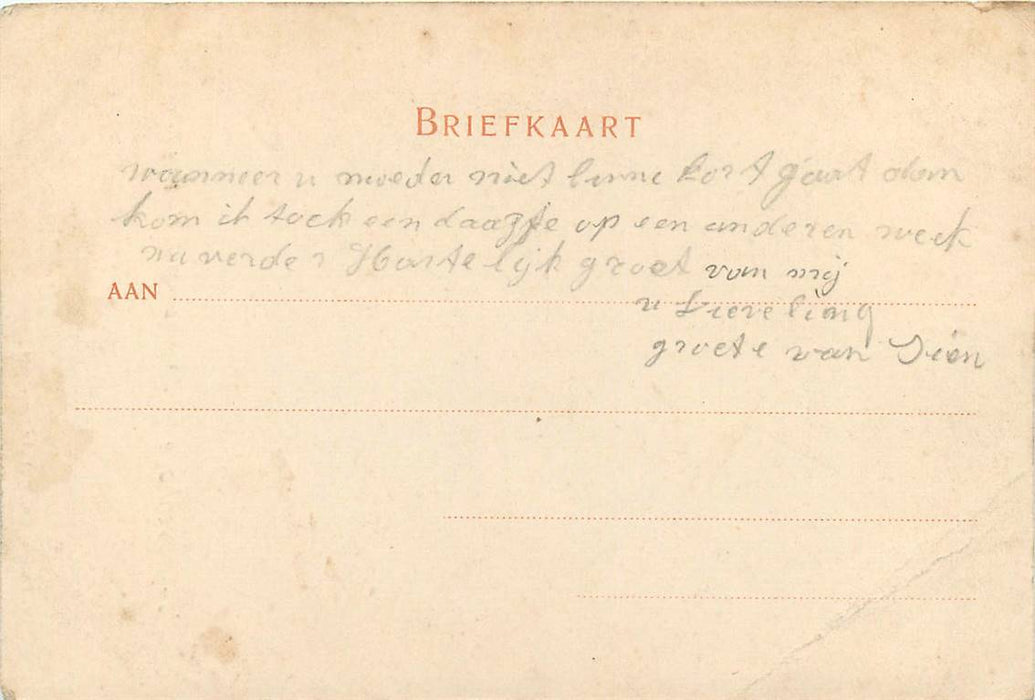 BRIEFKAART
wanneer u moeder niet binne kort gaat dan
kom ik toch een daagje op een anderen week
nu verder Hartelijk groet van mij
AAN
u Lieveling
groete van Dien